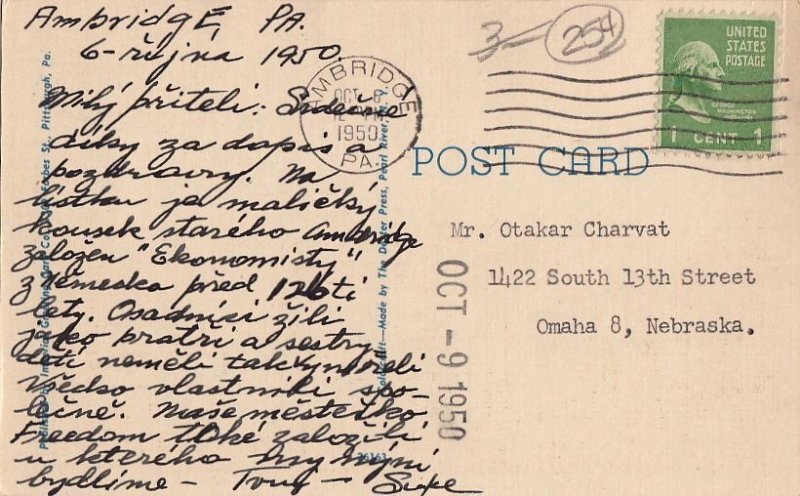 AmbridgE, PA.
6-října 1950.
Milý příteli: Srdečné
díky za dopis a
pozdravy. Na
lístku je maličký
kousek starého Ambridge
založen "Ekonomisty"
z Německa před 126ti
lety. Osadníci žili
jako bratři a sestry
děti neměli tak vymřeli
všecko vlastnili spo-
lečně. Naše městečko
Freedom také založili
u kterého my nyní
bydlíme - Tvůj -
3
254
AMBRIDGE
OCT 6
PM
1950
PA.
UNITED
STATES
POSTAGE
GEORGE
WASHINGTON
1 CENT 1
POST CARD
Mr. Otakar Charvat
1422 South 13th Street
Omaha 8, Nebraska.
OCT - 9 1950
Forbes St., Pittsburgh, Pa.
Made by The Dexter Press, Pearl River, N. Y.
36163